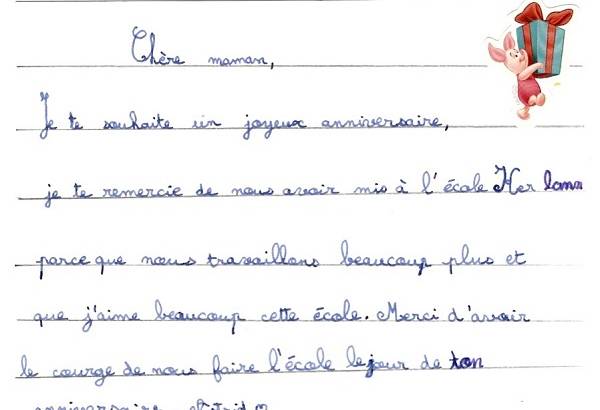 Chère maman,
Je te souhaite un joyeux anniversaire,
je te remercie de nous avoir mis à l'école Her lann
parce que nous travaillons beaucoup plus et
que j'aime beaucoup cette école. Merci d'avoir
le courge de nous faire l'école le jour de ton
anniversaire. Astrid